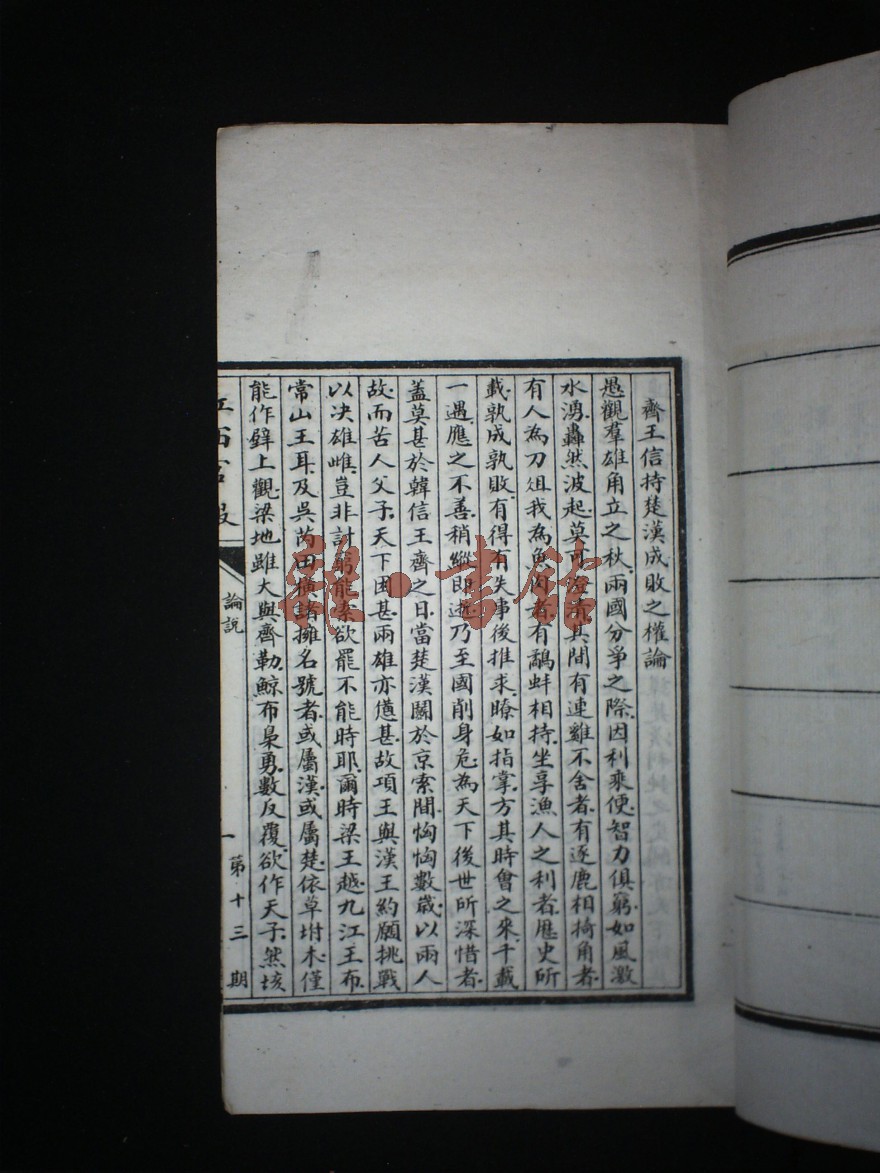 齊王信持楚漢成敗之權論
愚觀羣雄角立之秋兩國分爭之際因利乘便智力俱窮如風激
水湧轟然波起莫可澄清其間有連雞不舍者有逐鹿相掎角者
有人為刀俎我為魚肉者有鷸蚌相持坐享漁人之利者歷史所
載孰成孰敗有得有失事後推求瞭如指掌方其時會之來千載
一遇應之不善稍縱即逝乃至國削身危為天下後世所深惜者
蓋莫甚於韓信王齊之日當楚漢鬭於京索間恟恟數歲以兩人
故而苦人父子天下困甚兩雄亦憊甚故項王與漢王約願挑戰
以決雄雌豈非計窮能索欲罷不能時耶爾時梁王越九江王布
常山王耳及吳芮田橫諸擁名號者或屬漢或屬楚依草坿木僅
能作壁上觀梁地雖大與齊勒鯨布梟勇數反覆欲作天子然垓
江西官報
論說
一
第十三期
龍·書館